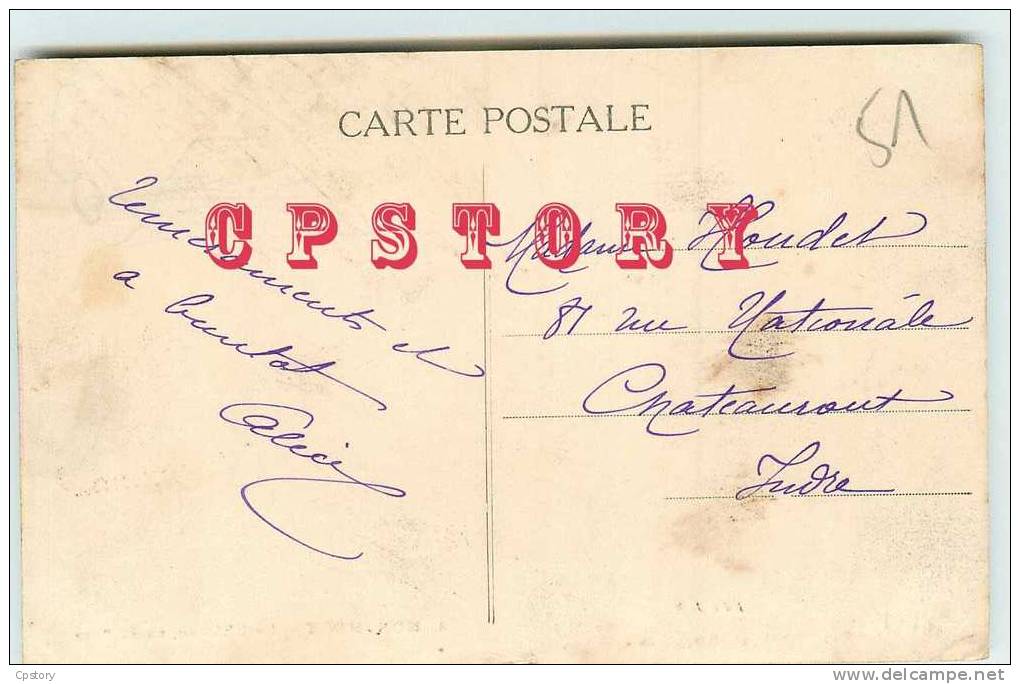 CARTE POSTALE
51
CPSTORY
et
a bientot
Alice
Madame Houdet
81 rue Nationale
Chateauroux
Indre
Cpstory
www.delcampe.net